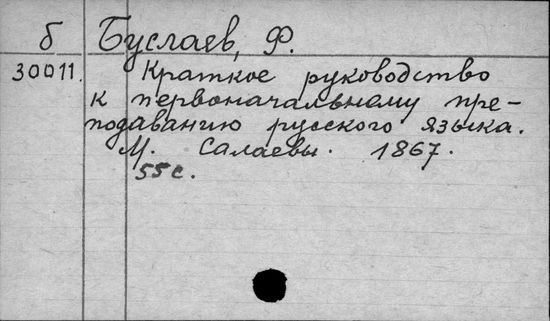 б Буслаев, Ф.
30011. Краткое руководство
к первоначальному пре-
подаванию русского языка.
М. Салаевы. 1867.
55 с.